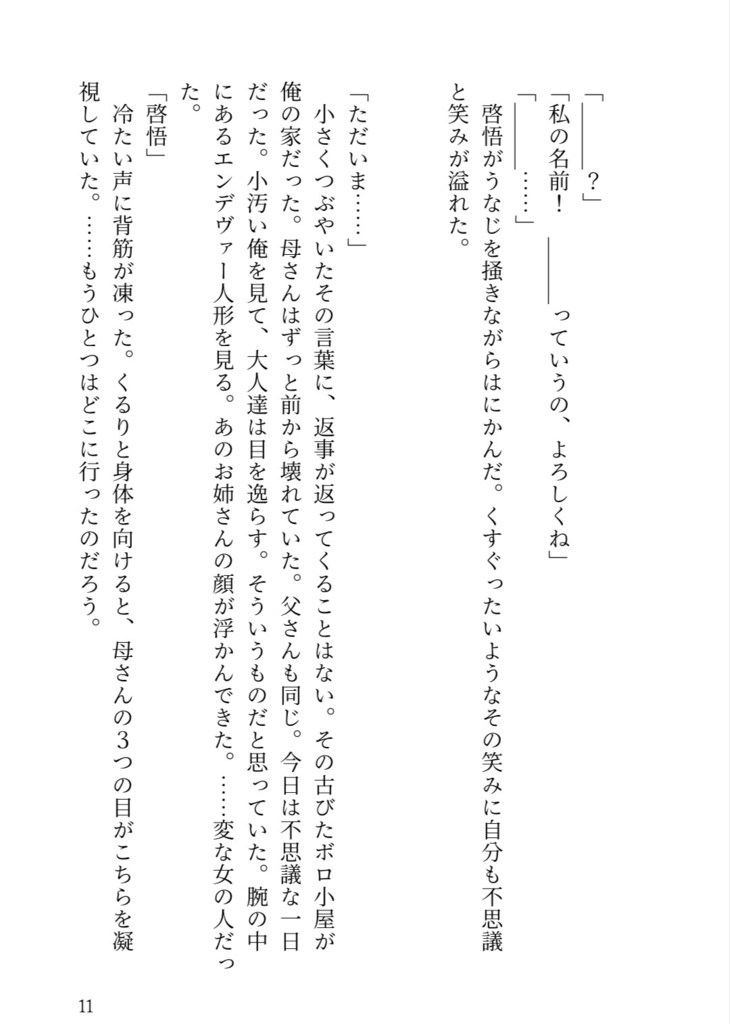 「―――？」
「私の名前！　―――っていうの、よろしくね」
「―――……」
　啓悟がうなじを掻きながらはにかんだ。くすぐったいようなその笑みに自分も不思議
と笑みが溢れた。
「ただいま……」
　小さくつぶやいたその言葉に、返事が返ってくることはない。その古びたボロ小屋が
俺の家だった。母さんはずっと前から壊れていた。父さんも同じ。今日は不思議な一日
だった。小汚い俺を見て、大人達は目を逸らす。そういうものだと思っていた。腕の中
にあるエンデヴァー人形を見る。あのお姉さんの顔が浮かんできた。……変な女の人だっ
た。
「啓悟」
　冷たい声に背筋が凍った。くるりと身体を向けると、母さんの３つの目がこちらを凝
視していた。……もうひとつはどこに行ったのだろう。
11